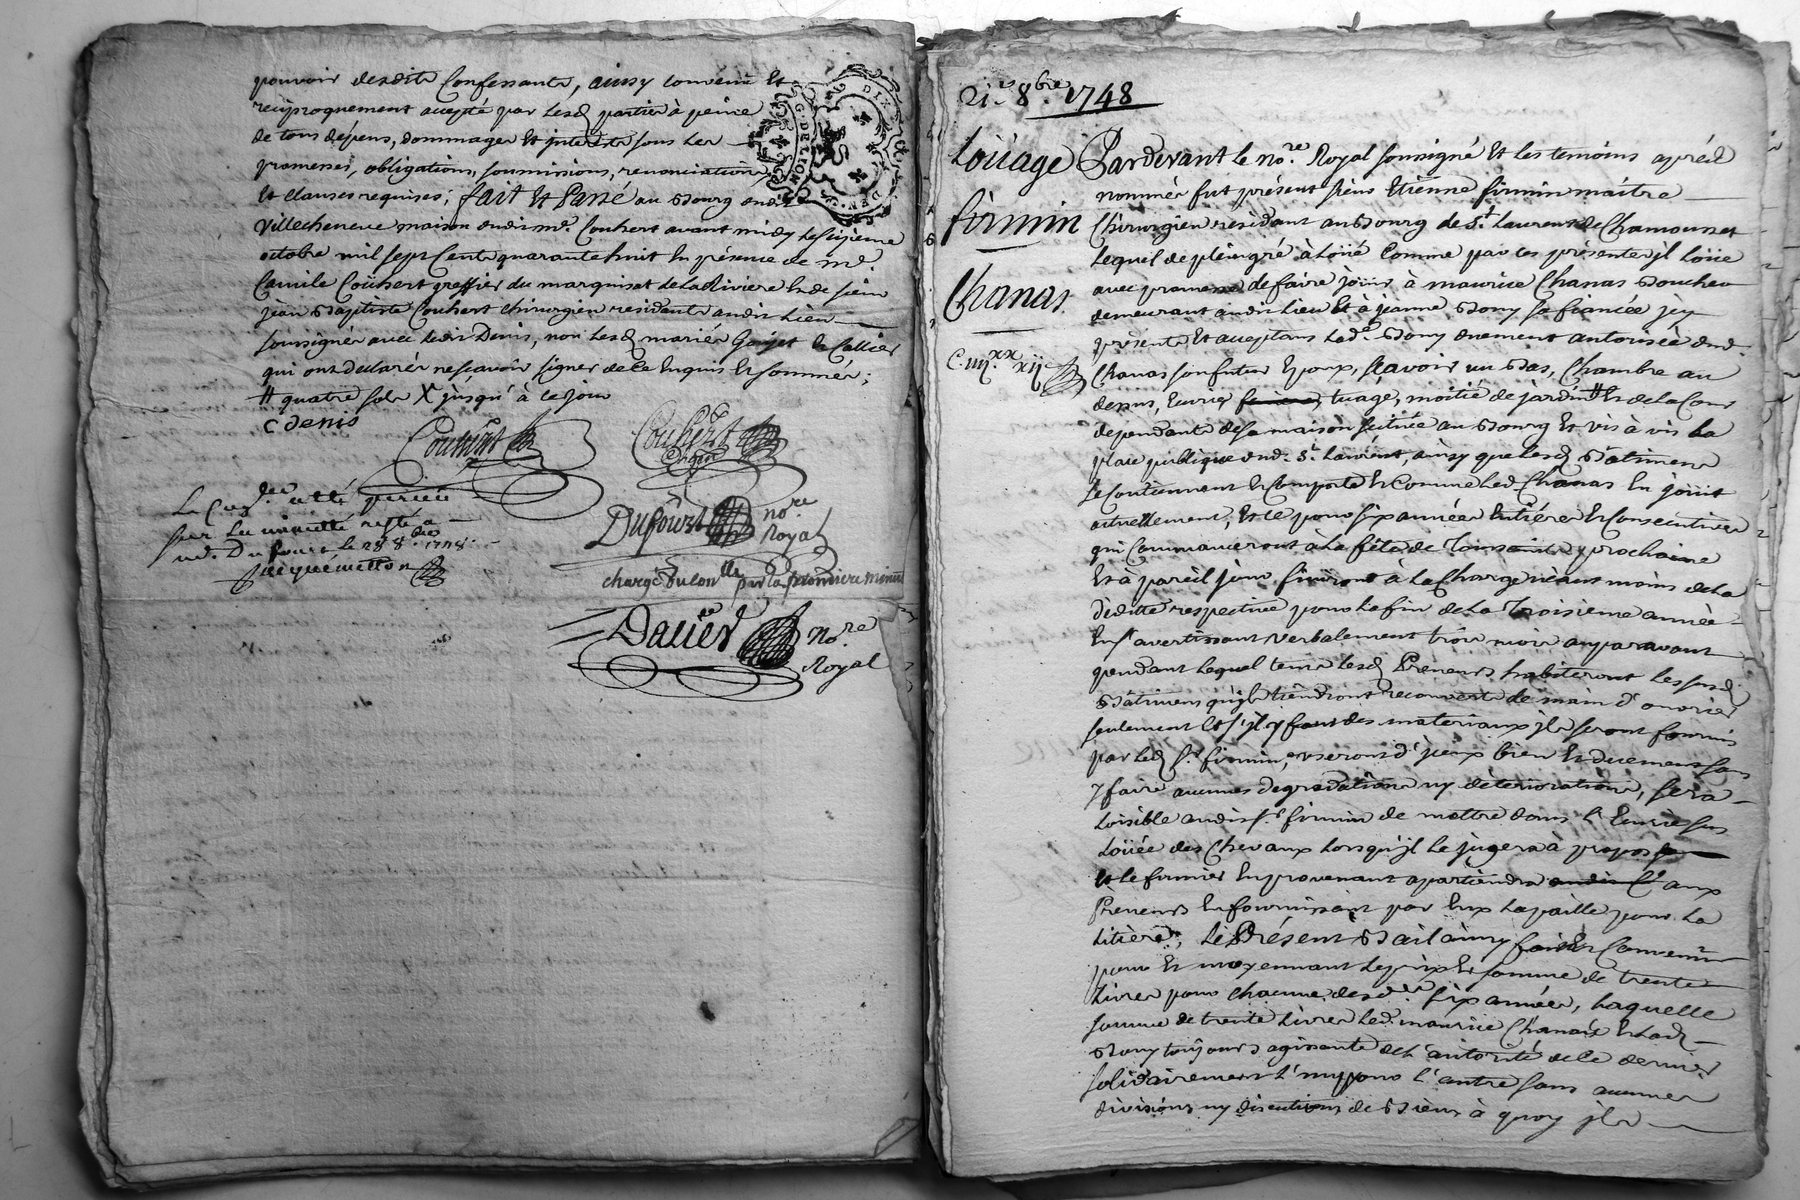 pouvoir desdits Confessants, ainsy convenu et
reciproquement accepté par lesd. parties à peine
de tous dépens, dommages et interests sous les
promesses, obligations, soumissions, renonciations
et clauses requises; fait et Passé au bourg dudit
Villecheneve maison dudit me. Couhert avant midy le
octobre mil sept Cents quarante huit en présence de me.
Camile Couhert greffier du marquisat de la Riviere et de sieur
jean Baptiste Couhert chirurgien residents audit lieu
soussignés avec ledit Denis, non lesd. mariés et
qui ont declaré ne sçavoir signer de ce enquis et sommés;
# quatre sols X jusqu'à ce jour
C Denis
Couhert Couhert
Dufourt nore.
Royal
sur la minutte restée
Md. Dufourt le 28 8bre 1748.
chargé du conlle. sur la premiere minute
Davier nore
Royal
G. DE LION DIX DEN
21e. 8bre. 1748
Loüage
firmin
Chanas.
C. iiijxx xij
Pardevant le nore. Royal soussigné et les temoins aprés
nommés fut présent sieur Etienne firmin maitre
Chirurgien residant au Bourg de St. Laurent de Chamousset
Lequel de plein gré à Loüé Comme par ces présentes jl Loüe
avec promesse de faire joüir à maurice Chanas Boucher
demeurant audit lieu et à jeanne Bony sa fiancée jcy
présents et acceptans lade. Bony duement autorisée dud.
Chanas son futur Epoux, sçavoir un Bas, Chambre au
dessus, Ecurie, tuage, moitié de jardin # et de la Cour
dependants de sa maison scituée au Bourg et vis à vis la
place publique dud. St. Laurent, ainsy que lesd. Batimens
se Contiennent et Comporte et Comme led. Chanas en joüit
actuellement, et ce pour six années Entieres et Consecutives
qui Commanceront à la fête de Toussaints prochaine
et à pareil jour finiront à la Charge néant moins de la
déditte respective pour la fin de la Troisieme année
En s'avertissant verbalement trois mois auparavant
pendant lequel tems lesd. Preneurs habiteront les susd.
Batimens qu'jls tiendront recouverts de main d'ouvrier
seulement et s'jl y faut des materiaux jls seront fournis
par led. sr. firmin, useront d'jceux bien et duement sans
y faire aucunes degradations ny déteriorations, sera
Loisible audit sr. firmin de mettre dans l'Ecurie sus
Loüée des Chevaux lorsqu'jl le jugera à propos
et le fumier En provenant apartiendra aux
Preneurs En fournissant par Eux la paille pour la
Litiere; Le Présent Bail ainsy fait et Convenu
pour et moyennant le prix et somme de trente
Livres pour chacune desdes. six années, laquelle
somme de trente Livres led. maurice Chanas et lad.
Bony toujours agissante de l'autorité de ce dernier
solidairement l'un pour l'autre sans aucunes
divisions ny discutions de Biens à quoy jls